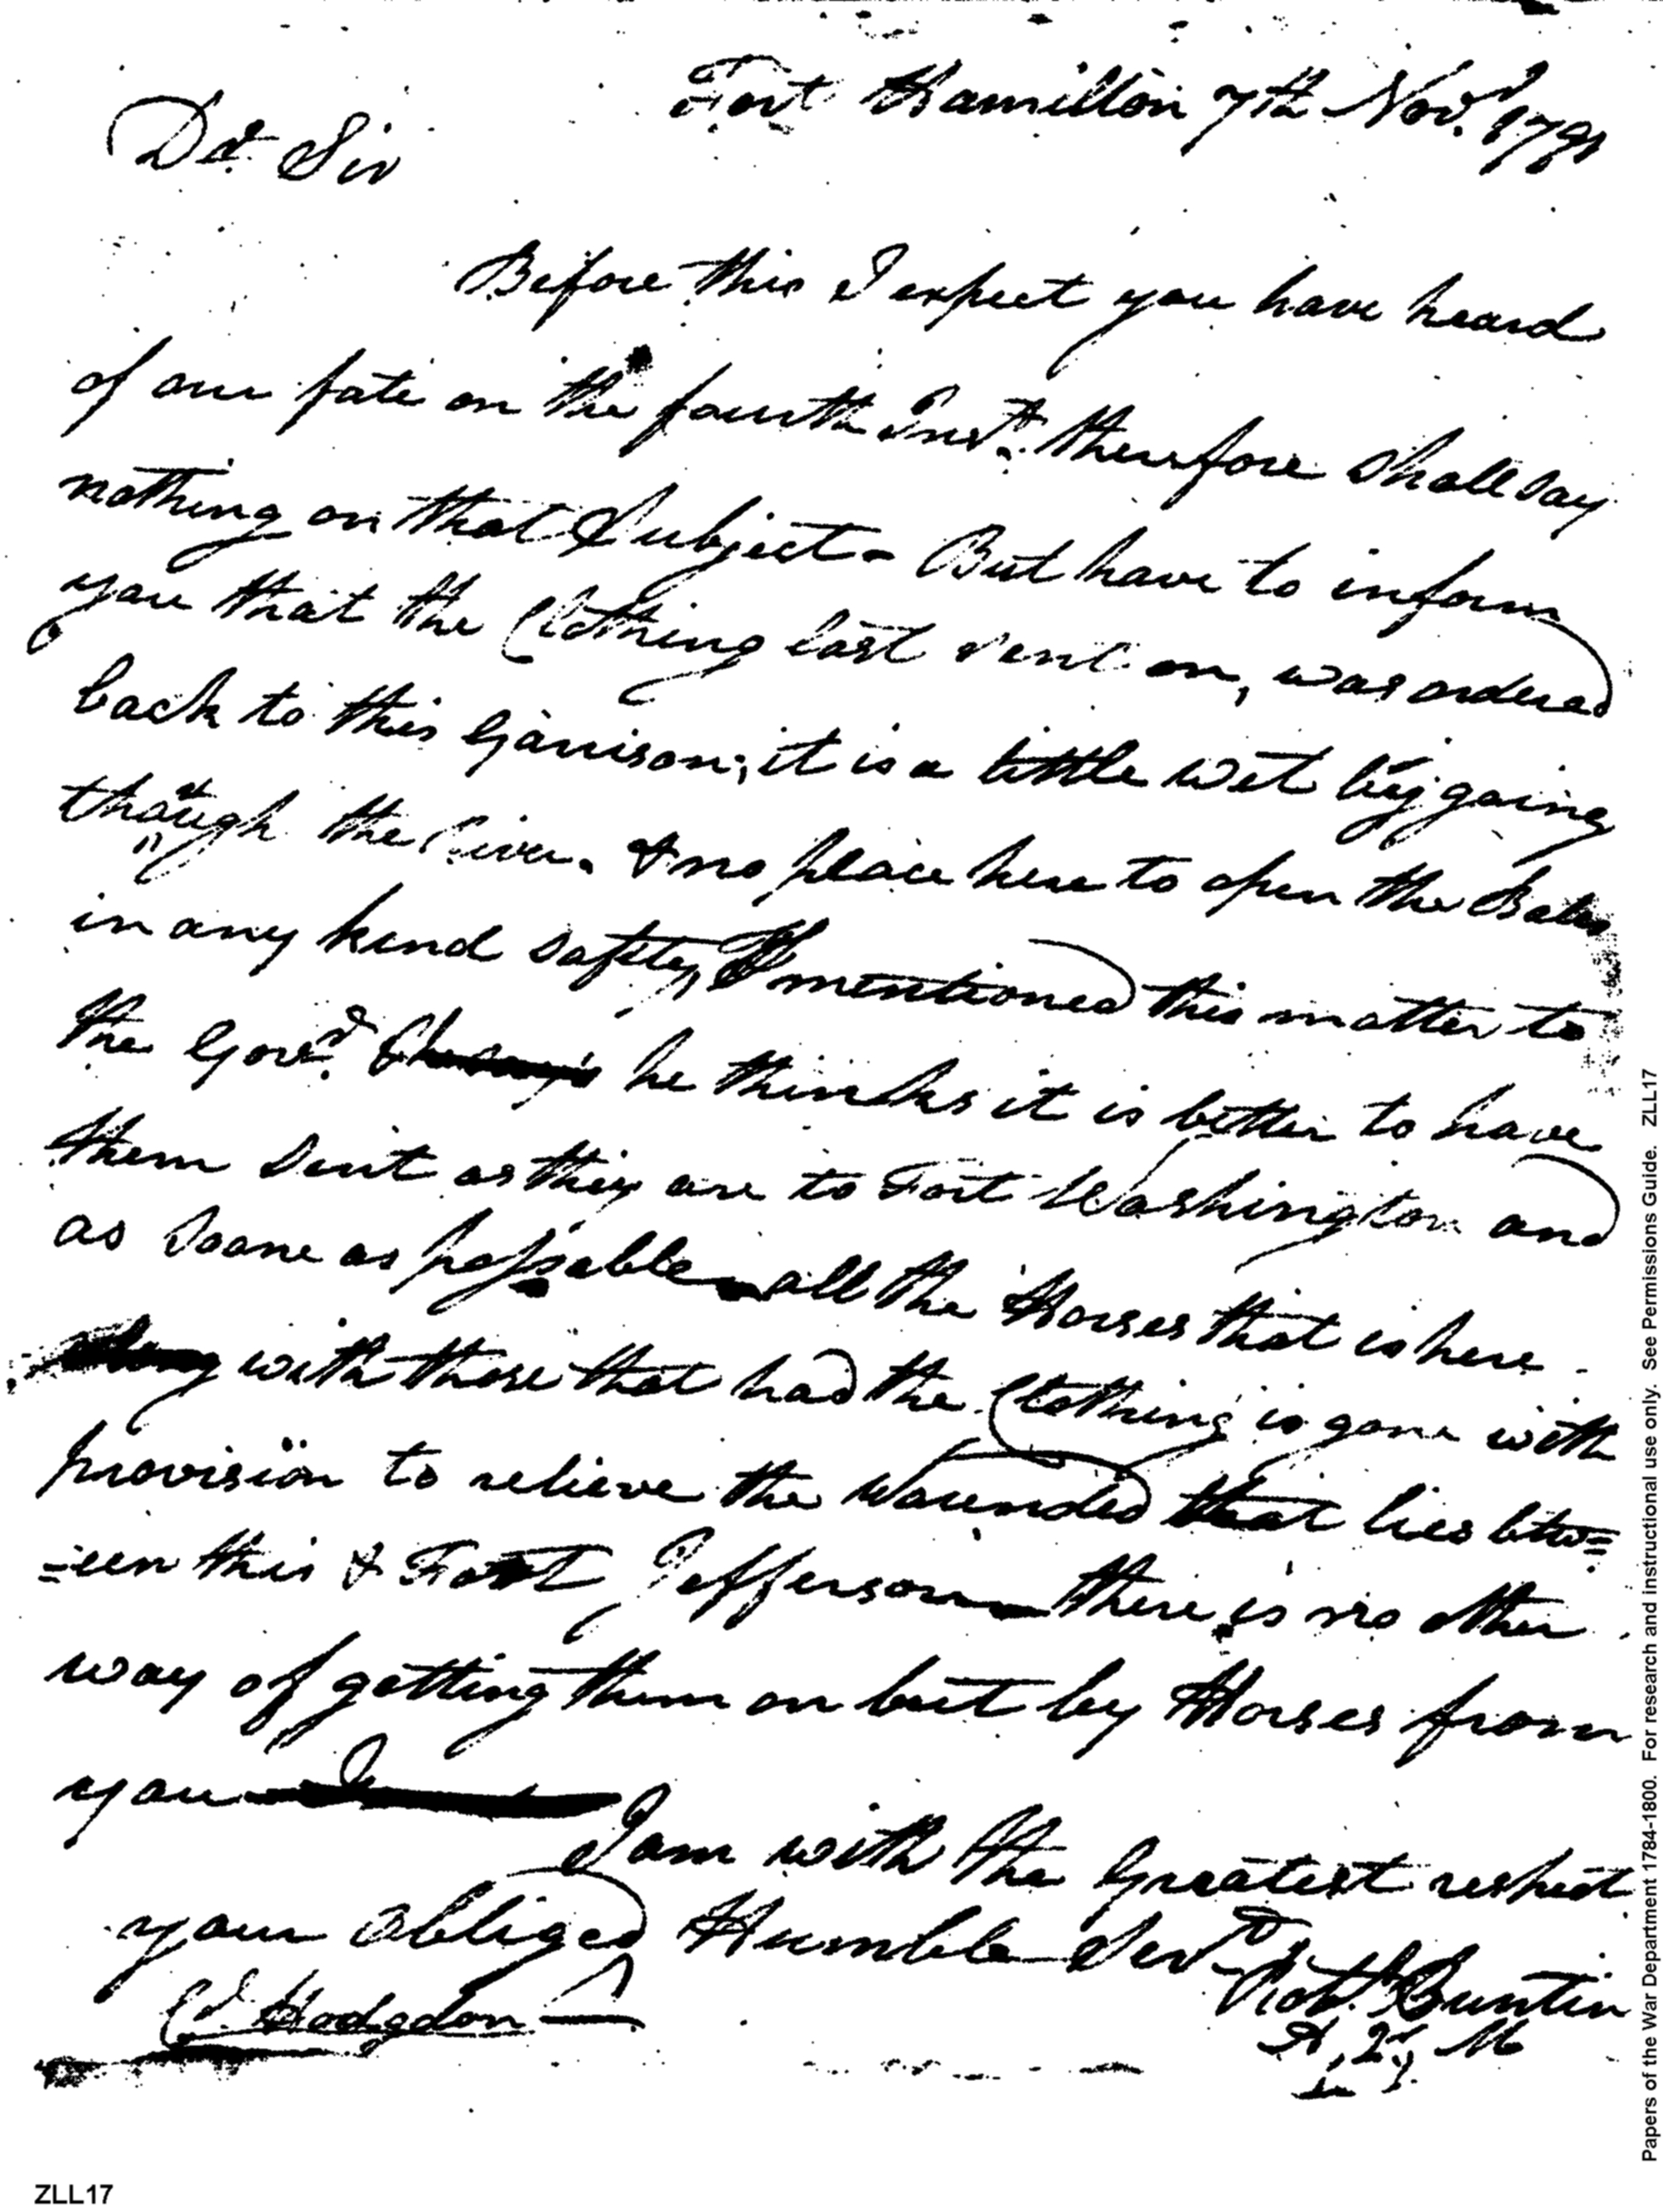 Fort Hamilton 7th Novr. 1791
Dr. Sir
Before this I expect you have heard
of our fate on the fourth Inst. therefore shall say
nothing on that Subject - But have to inform
you that the Clothing last sent on, was ordered
back to this Garrison; it is a little wet by going
though the River. & no place here to open the Bales
in any kind safety, I mentioned this matter to
the Govr. & he thinks it is better to have
them Sent as they are to Fort Washington and
as Soone as possable all the Horses that is here
along with those that had the Clothing is gone with
provision to relieve the Wounded that lies betw=
=een this & Fort Jefferson there is no other
way of getting them on but by Horses from
you
I am with the Greatest respect
your Obliged Humble Servt.
Robt. Buntin
A, Q, M
Hodgdon
Papers of the War Department 1784-1800. For research and instructional use only. See Permissions Guide. ZLL17
ZLL17